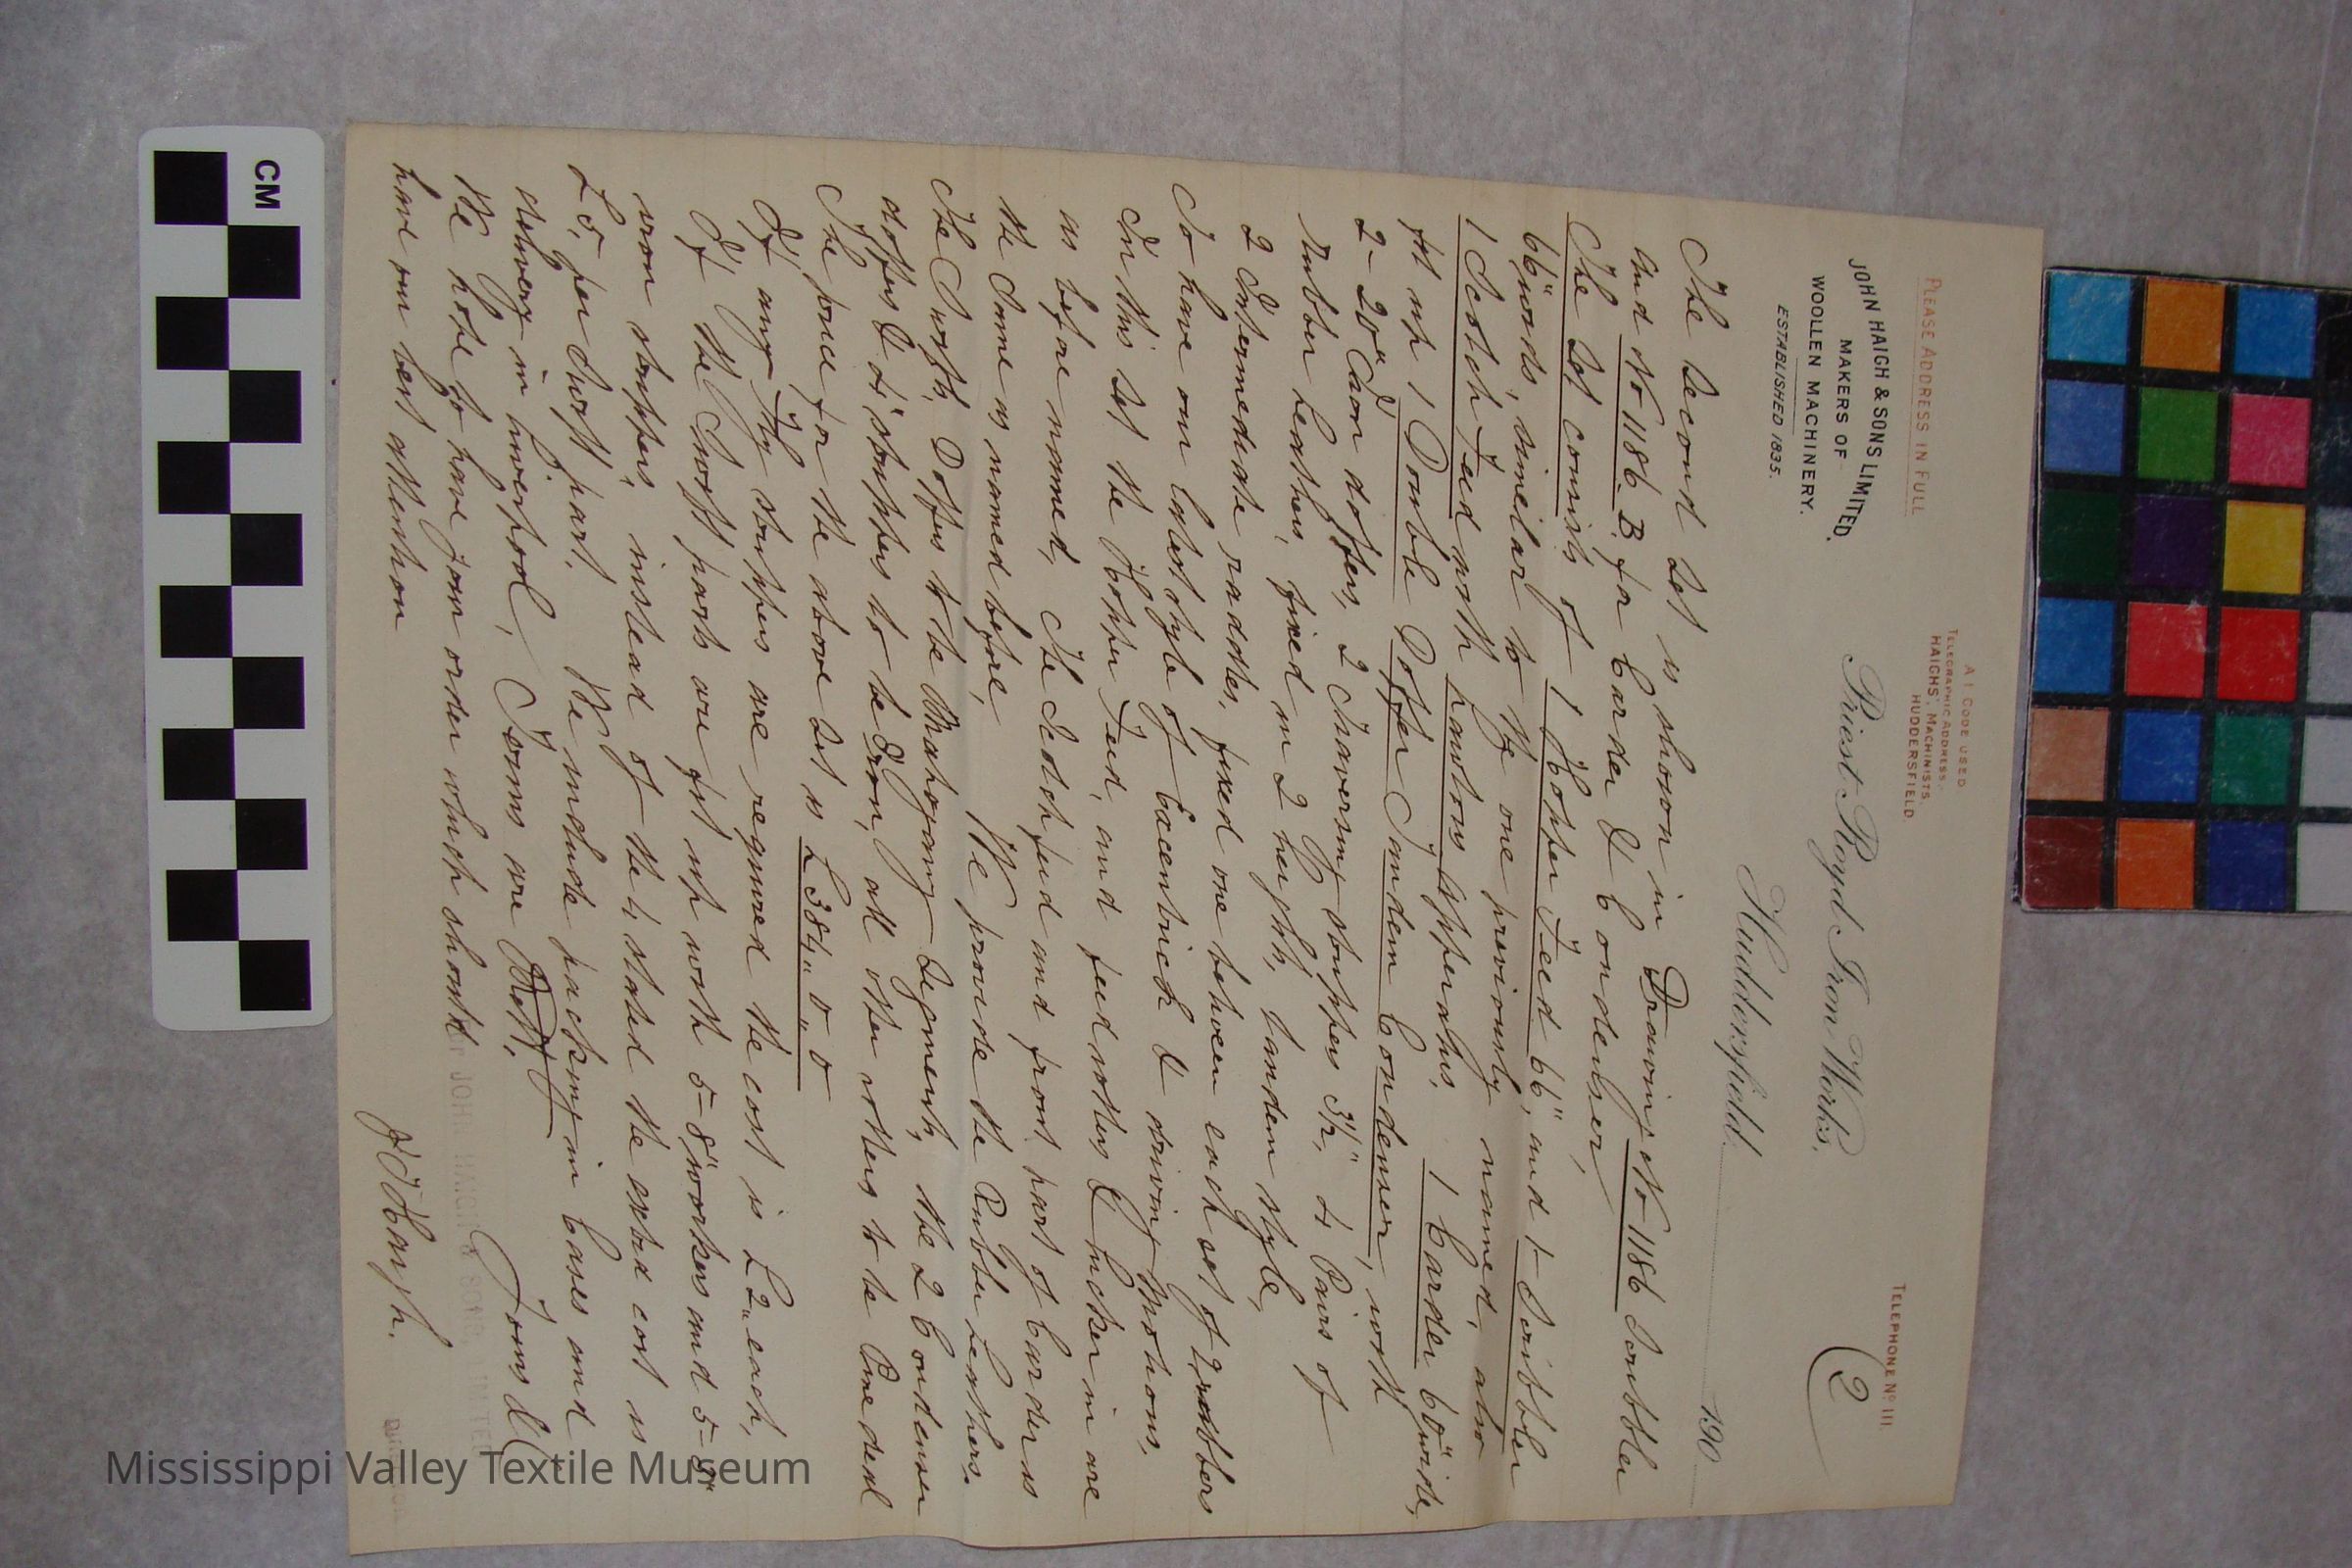 PLEASE ADDRESS IN FULL
A 1 CODE USED
TELEGRAPHIC ADDRESS,
HAIGHS', MACHINISTS,
HUDDERSFIELD.
TELEPHONE No. 111.
JOHN HAIGH & SONS LIMITED.
MAKERS OF
WOOLLEN MACHINERY.
ESTABLISHED 1835.
Priest Royd Iron Works,
Huddersfield.
190
2
The second set is shown in Drawing No 1186 Scribbler
and No 1186. B. for Carder & Condenser,
The set consists of 1 Hopper Feed 66", and 1- Scribbler
66" wide, similar to the one previously named, also
1 Scotch Feed with Apperatus. 1 Carder 60" wide,
fit up 1 Double Doffer Tandem Condenser, with
2- 20" Dia doffers, 2 Traversing strippers 3½", 4 Pairs of
rubber Leathers, fixed in 2 heights, tandem style,
2 Intermediate raddles, fixed one between each set of 2 rubbers
To have our latest style of Eccentrick & driving motions,
In this set the Hopper Feed, and feed rollers & Lickerin are
as before named, The Scotch feed and front part of Carder is
the same as named before, We provide the Rubber Leathers.
The Swifts, Doffers to be Mahogany Segments, the 2 Condenser
doffers & 4" strippers to be Iron, all other rollers to be Pine deal
The price for the above set is £384" 0" 0
If any Fly strippers are required the cost is £2" each,
If the Swift parts are fit up with 5- 8" workers and 5- 3"
iron strippers, instead of the 4 stated the extra cost is
£5, per Swift part. We include packing in Cases and
delivery in Liverpool, Terms are Nett,
We hope to have your order which should
have our best attention
Yours &c
J Haigh.
JOHN HAIGH & SONS, LIMITED
CM
Mississippi Valley Textile Museum